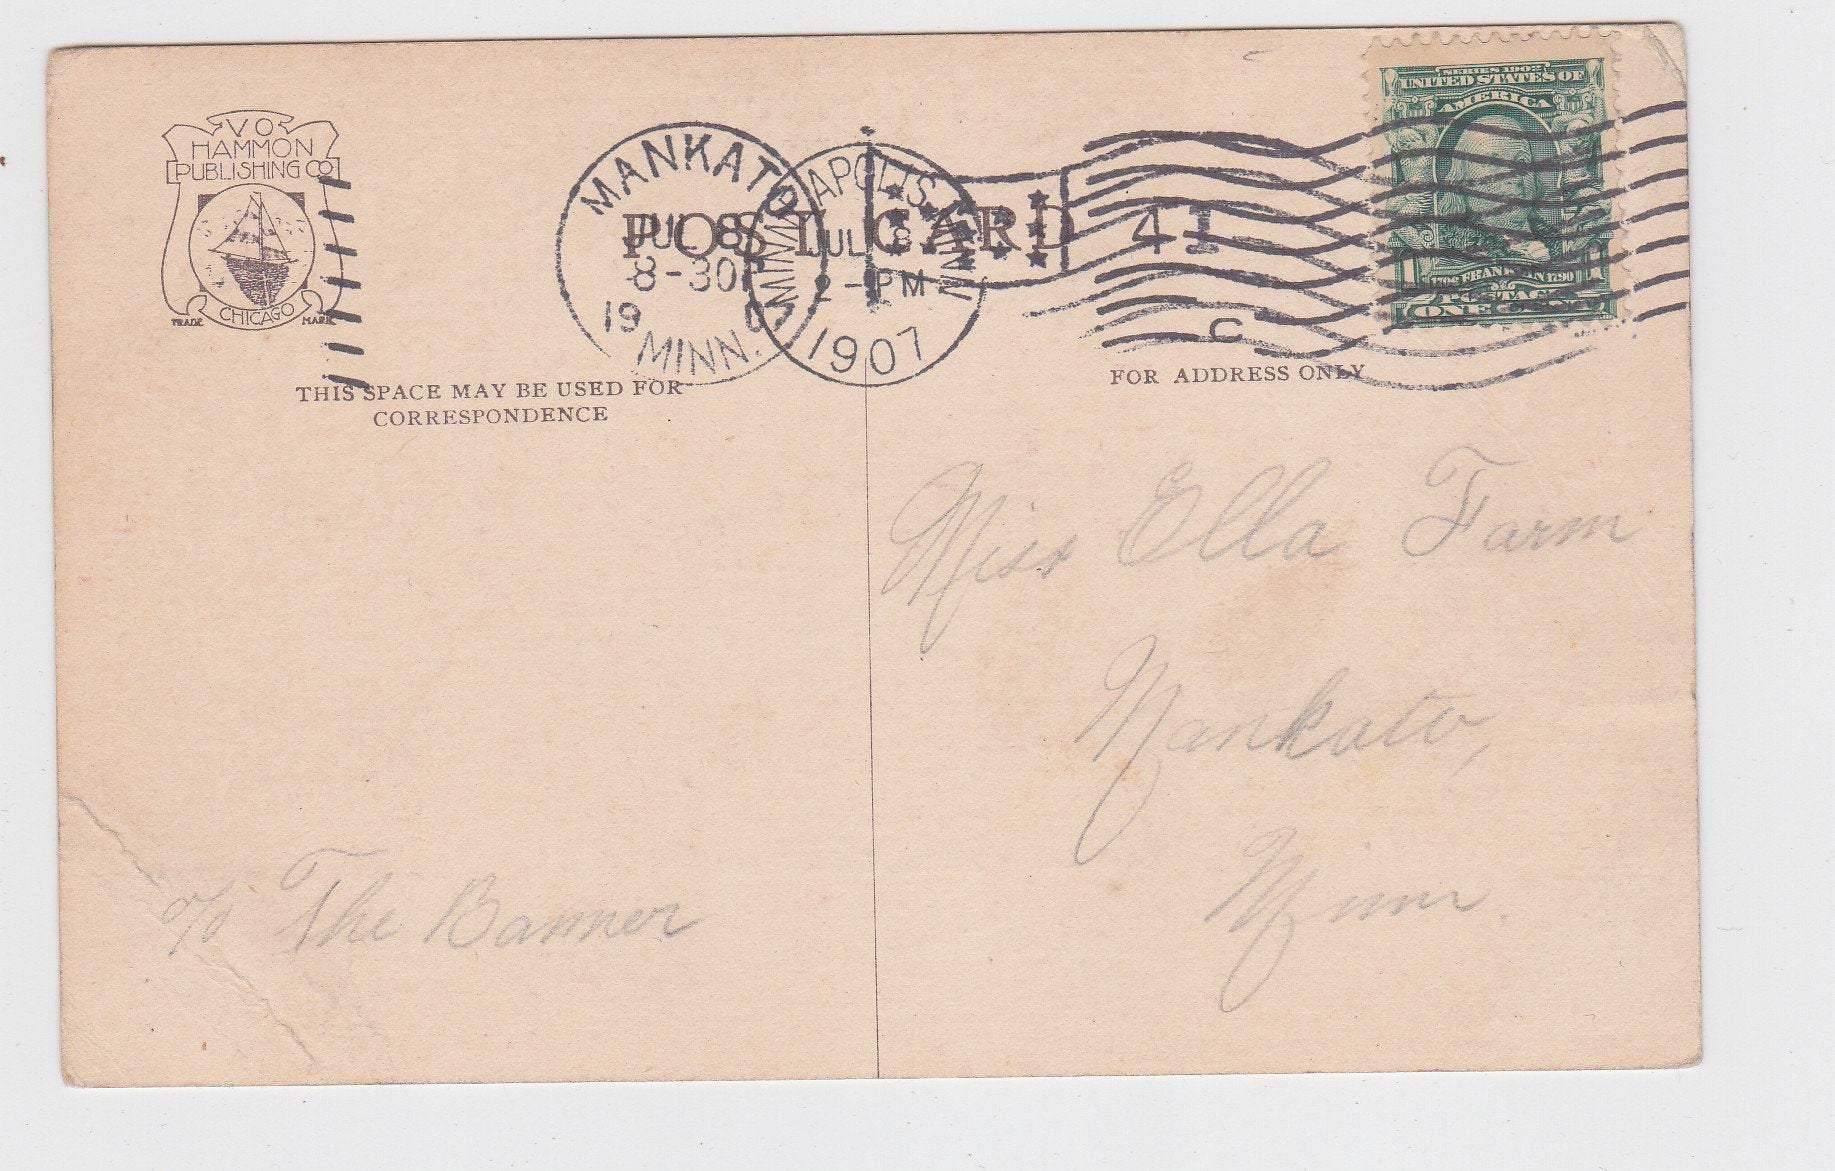 V O
HAMMON
PUBLISHING CO
CHICAGO
TRADE MARK
MANKATO
JUL 8
8-30P
19
MINN.
MINNEAPOLIS, MINN.
JUL 8
2-PM
1907
POST CARD
41
C
SERIES 1902
UNITED STATES OF
AMERICA
FRANKLIN 1790
POSTAGE
1 1
ONE CENT
THIS SPACE MAY BE USED FOR
CORRESPONDENCE
FOR ADDRESS ONLY
Miss Ella Farm
Mankato,
Minn.
c/o The Banner